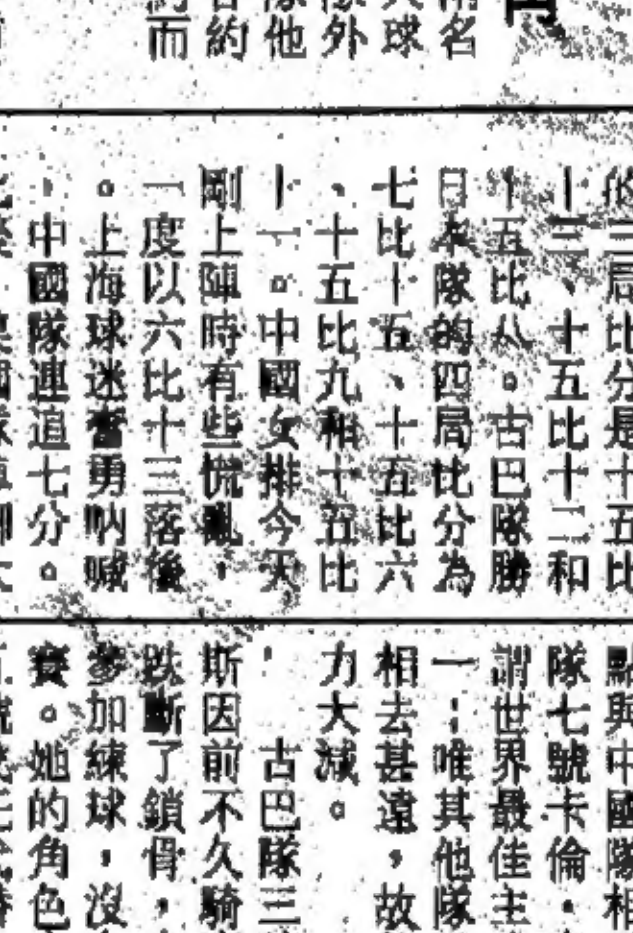 兩名
大球
隊外
隊他
名約
約而
的三局比分是十五比
十三、十五比十二和
十五比八。古巴隊勝
日本隊的四局比分為
七比十五、十五比六
、十五比九和十五比
十一。中國女排今天
剛上陣時有些慌亂，
一度以六比十三落後
。上海球迷奮勇吶喊
，中國隊連追七分。
點與中國隊相
隊七號卡倫．
謂世界最佳主
一；唯其他隊
相去甚遠，故
力大減。
古巴隊三
斯因前不久騎
跌斷了鎖骨，
參加練球，沒
賽。她的角色